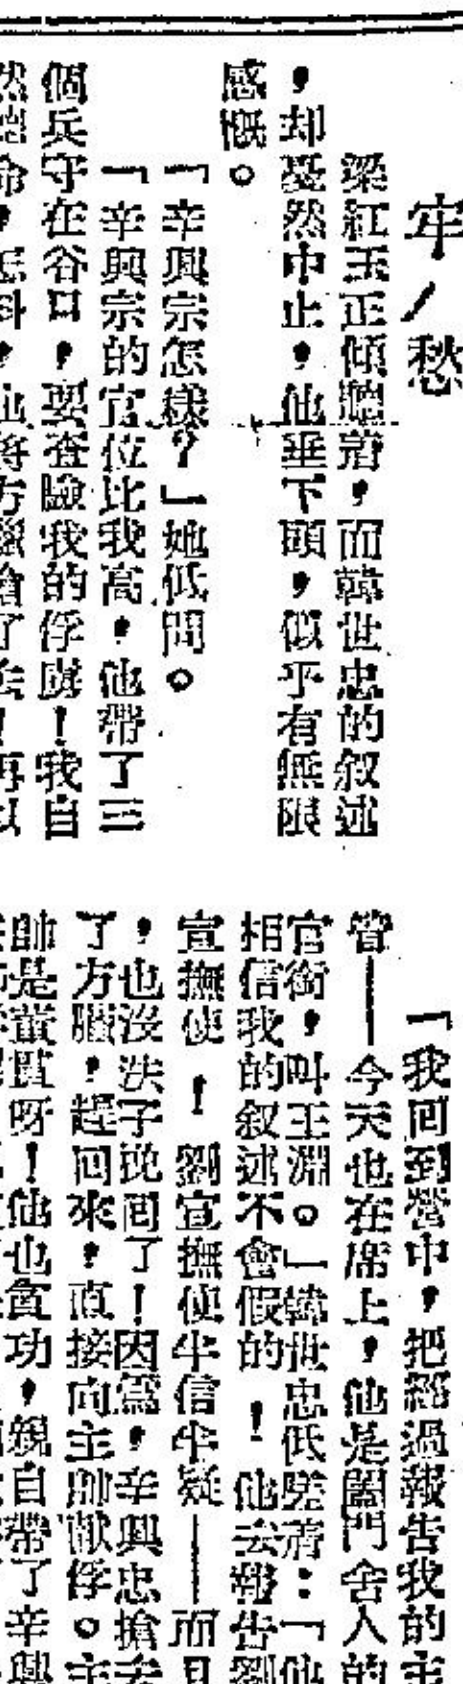 牢／愁
梁紅玉正傾聽着，而韓世忠的叙述
，却戞然中止，他垂下頭，似乎有無限
感慨。
「辛興宗怎樣？」她低問。
「辛興宗的官位比我高，他帶了三
個兵守在谷口，要查驗我的俘虜！我自
「我回到營中，把經過報告我的主
管——今天也在席上，他是閤門舍人的
官銜，叫王淵。」韓世忠低嗟着：「他
相信我的叙述不會假的！他去報告劉
宣撫使！劉宣撫使半信半疑——而且
，也沒法子挽回了！因爲，辛興忠搶去
了方臘，趕回來，直接向主帥獻俘。主
帥是童貫呀！他也貪功，親自帶了辛興